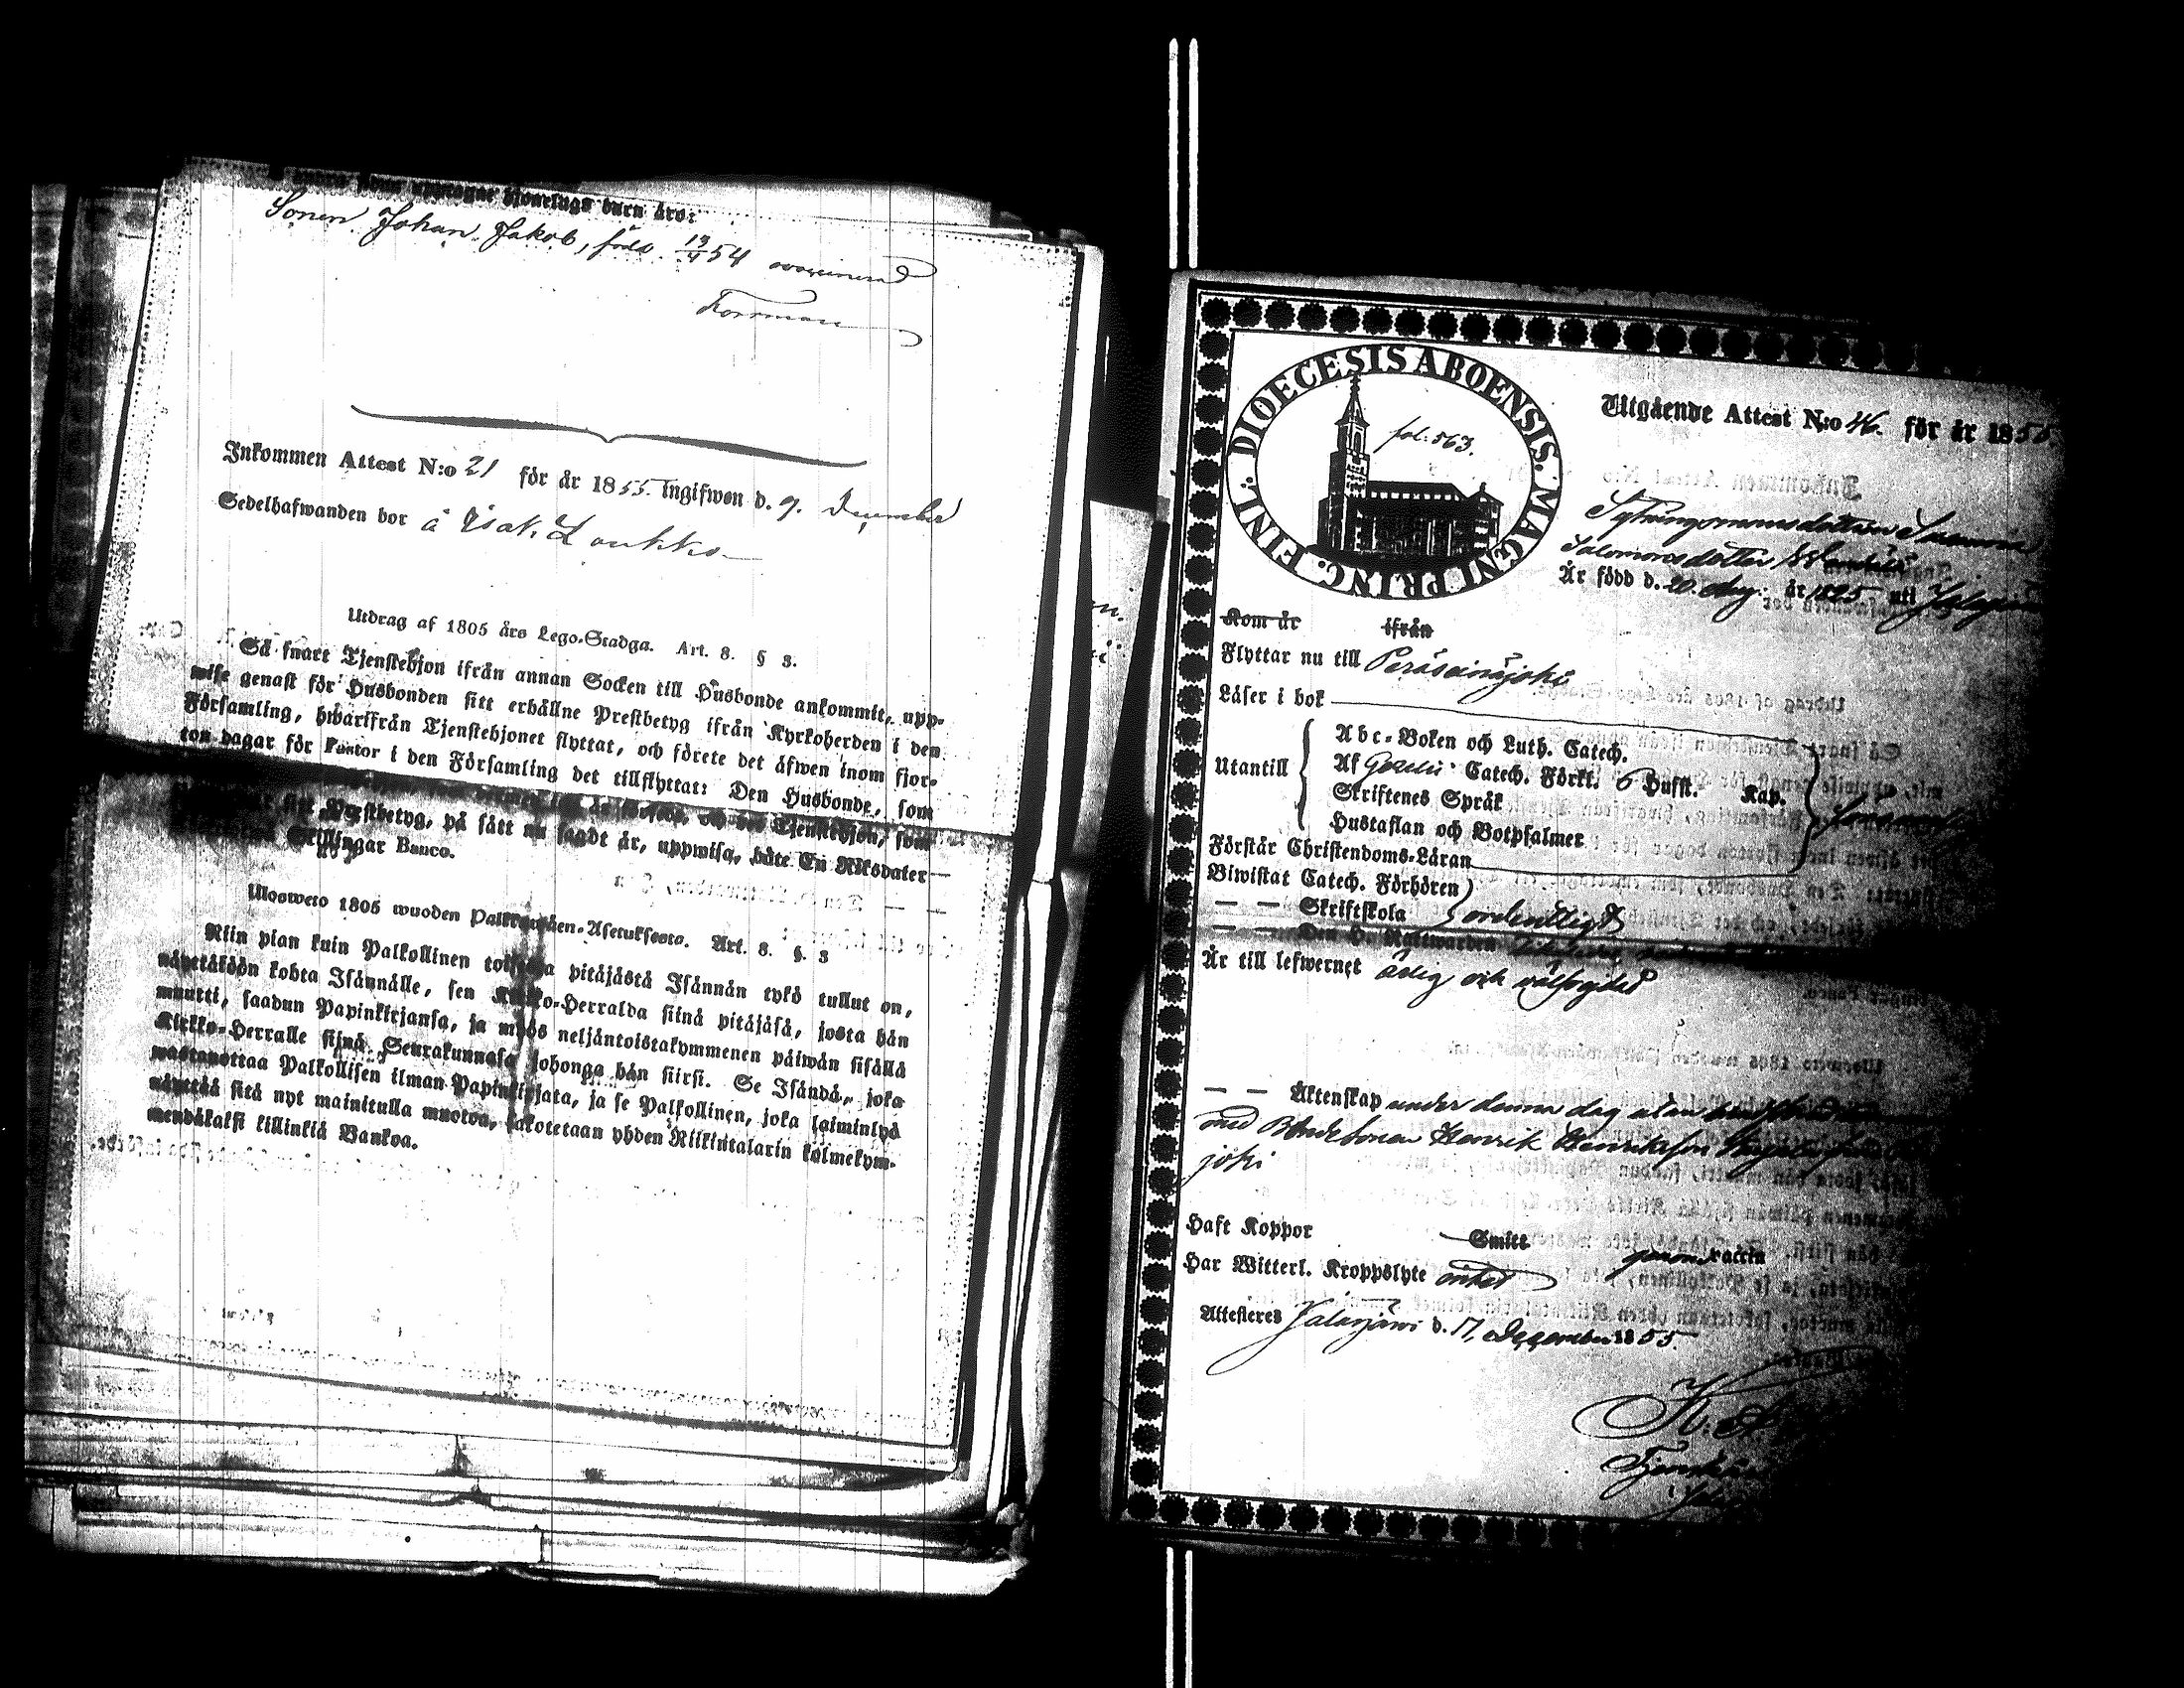 barn äro:
Sonen Johan Jakob, född 13/4 54 ovaccinerad
Forsman
Inkommen Attest N:o 21 för år 1855. ingifwen d. 9. December
Sedelhafwanden bor å Isak Loukko
Utdrag af 1805 års Lego-Stadga. Art. 8. § 3.
Så snart Tjenstehjon ifrån annan Socken till Husbonde ankommit, upp-
wise genast för Husbonden sitt erhållne Prestbetyg ifrån Kyrkoherden i den
Församling, hwarifrån Tjenstehjonet flyttat, och förete det äfwen inom fjor-
ton dagar för Pastor i den Församling det tillflyttat: Den Husbonde, som
Tjenstehjon, som
sitt Prestbetyg, på sätt nu sagdt är, uppwisa, böte En Riksdaler
Skillingar Banco.
Ulosweto 1805 wuoden Palkawäen-Asetuksesta. Art. 8. §. 3
Niin pian kuin Palkollinen toisesta pitäjästä Isännän tykö tullut on,
näyttäköön kohta Isännälle, sen Kirkko-Herralda siinä pitäjäsä, josta hän
muutti, saadun Papinkirjansa, ja myös neljäntoistakymmenen päiwän sisällä
Kirkko-Herralle siinä Seurakunnasa johonga hän siirsi. Se Isändä, joka
wastanottaa Palkollisen ilman Papinkirjata, ja se Palkollinen, joka laiminlyö
näyttää sitä nyt mainitulla muotoa, sakotetaan yhden Riikintalarin kolmekym-
mendäkaksi killinkiä Bankoa.
DIOECESIS ABOENSIS. MAGNI PRINC. FINL.
fol. 563.
Utgående Attest N:o 46. för år 1855
Sytningsmansdottren Susanna
Salomonsdotter
Är född d. 20 Aug. år 1825 uti
Kom år ifrån
Flyttar nu till Peräseinäjoki
Läser i bok
Utantill
Abc-Boken och Luth. Catech.
Af Gezelii Catech. Förkl. 6 Hufst. Kap.
Skriftenes Språk
Hustaflan och Botpsalmer
Förstår Christendoms-Läran
Biwistat Catech. Förhören
— — Skriftskola ordentligt
— — Den H. Nattwarden
Är till lefwernet ärlig och välfrejdad
— — Äktenskap under denna dag utan
med Bondesonen Henrik Henriksson
joki
Haft Koppor Smitt genom vaccin
Har Witterl. Kroppslyte intet
Attesteras Jalasjärvi d. 17 December 1855.